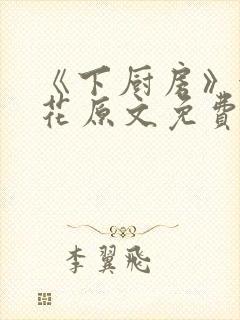 《下厨房》
花原文免費
李翼飛